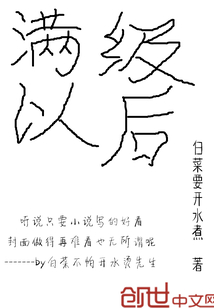 满级
以后
白菜要开水煮 著
听说只要小说写的好看
封面做得再难看也无所谓呢
-------by白菜不怕开水烫先生
创世中文网